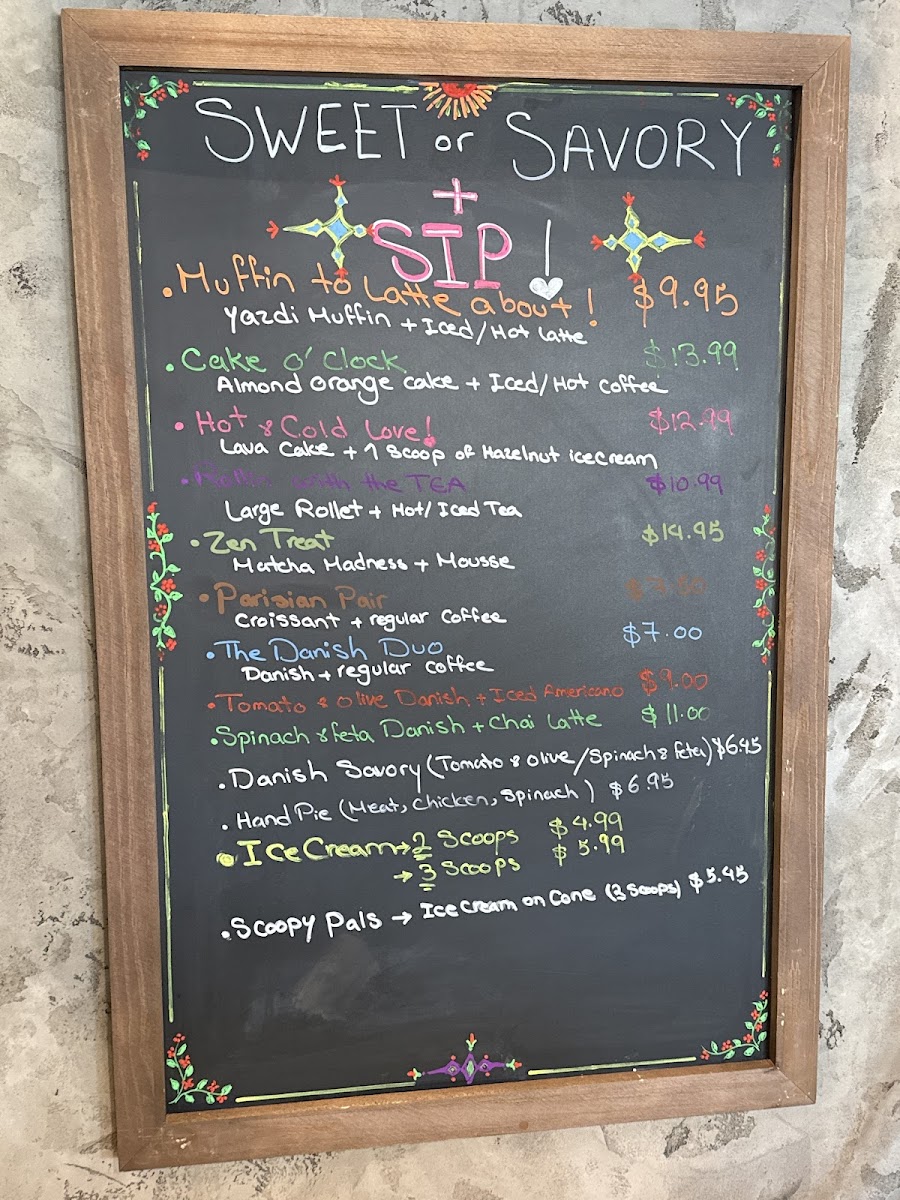 SWEET or SAVORY
+
SIP!
• Muffin to Latte about! $9.95
Yazdi Muffin + Iced/Hot latte
• Cake o'clock $13.99
Almond orange cake + Iced/Hot coffee
• Hot & Cold Love! $12.99
Lava Cake + 1 Scoop of Hazelnut icecream
• with the TEA $10.99
Large Rollet + Hot/Iced Tea
• Zen Treat $14.95
Matcha Madness + Mousse
• Parisian Pair
Croissant + regular coffee
• The Danish Duo $7.00
Danish + regular coffee
• Tomato & olive Danish + Iced Americano $9.00
• Spinach & feta Danish + Chai latte $11.00
• Danish Savory (Tomato & olive/Spinach & feta) $6.45
• Hand Pie (Meat, chicken, spinach) $6.95
• Ice Cream → 2 Scoops $4.99
→ 3 Scoops $5.99
• Scoopy Pals → Ice cream on Cone (3 Scoops) $5.45